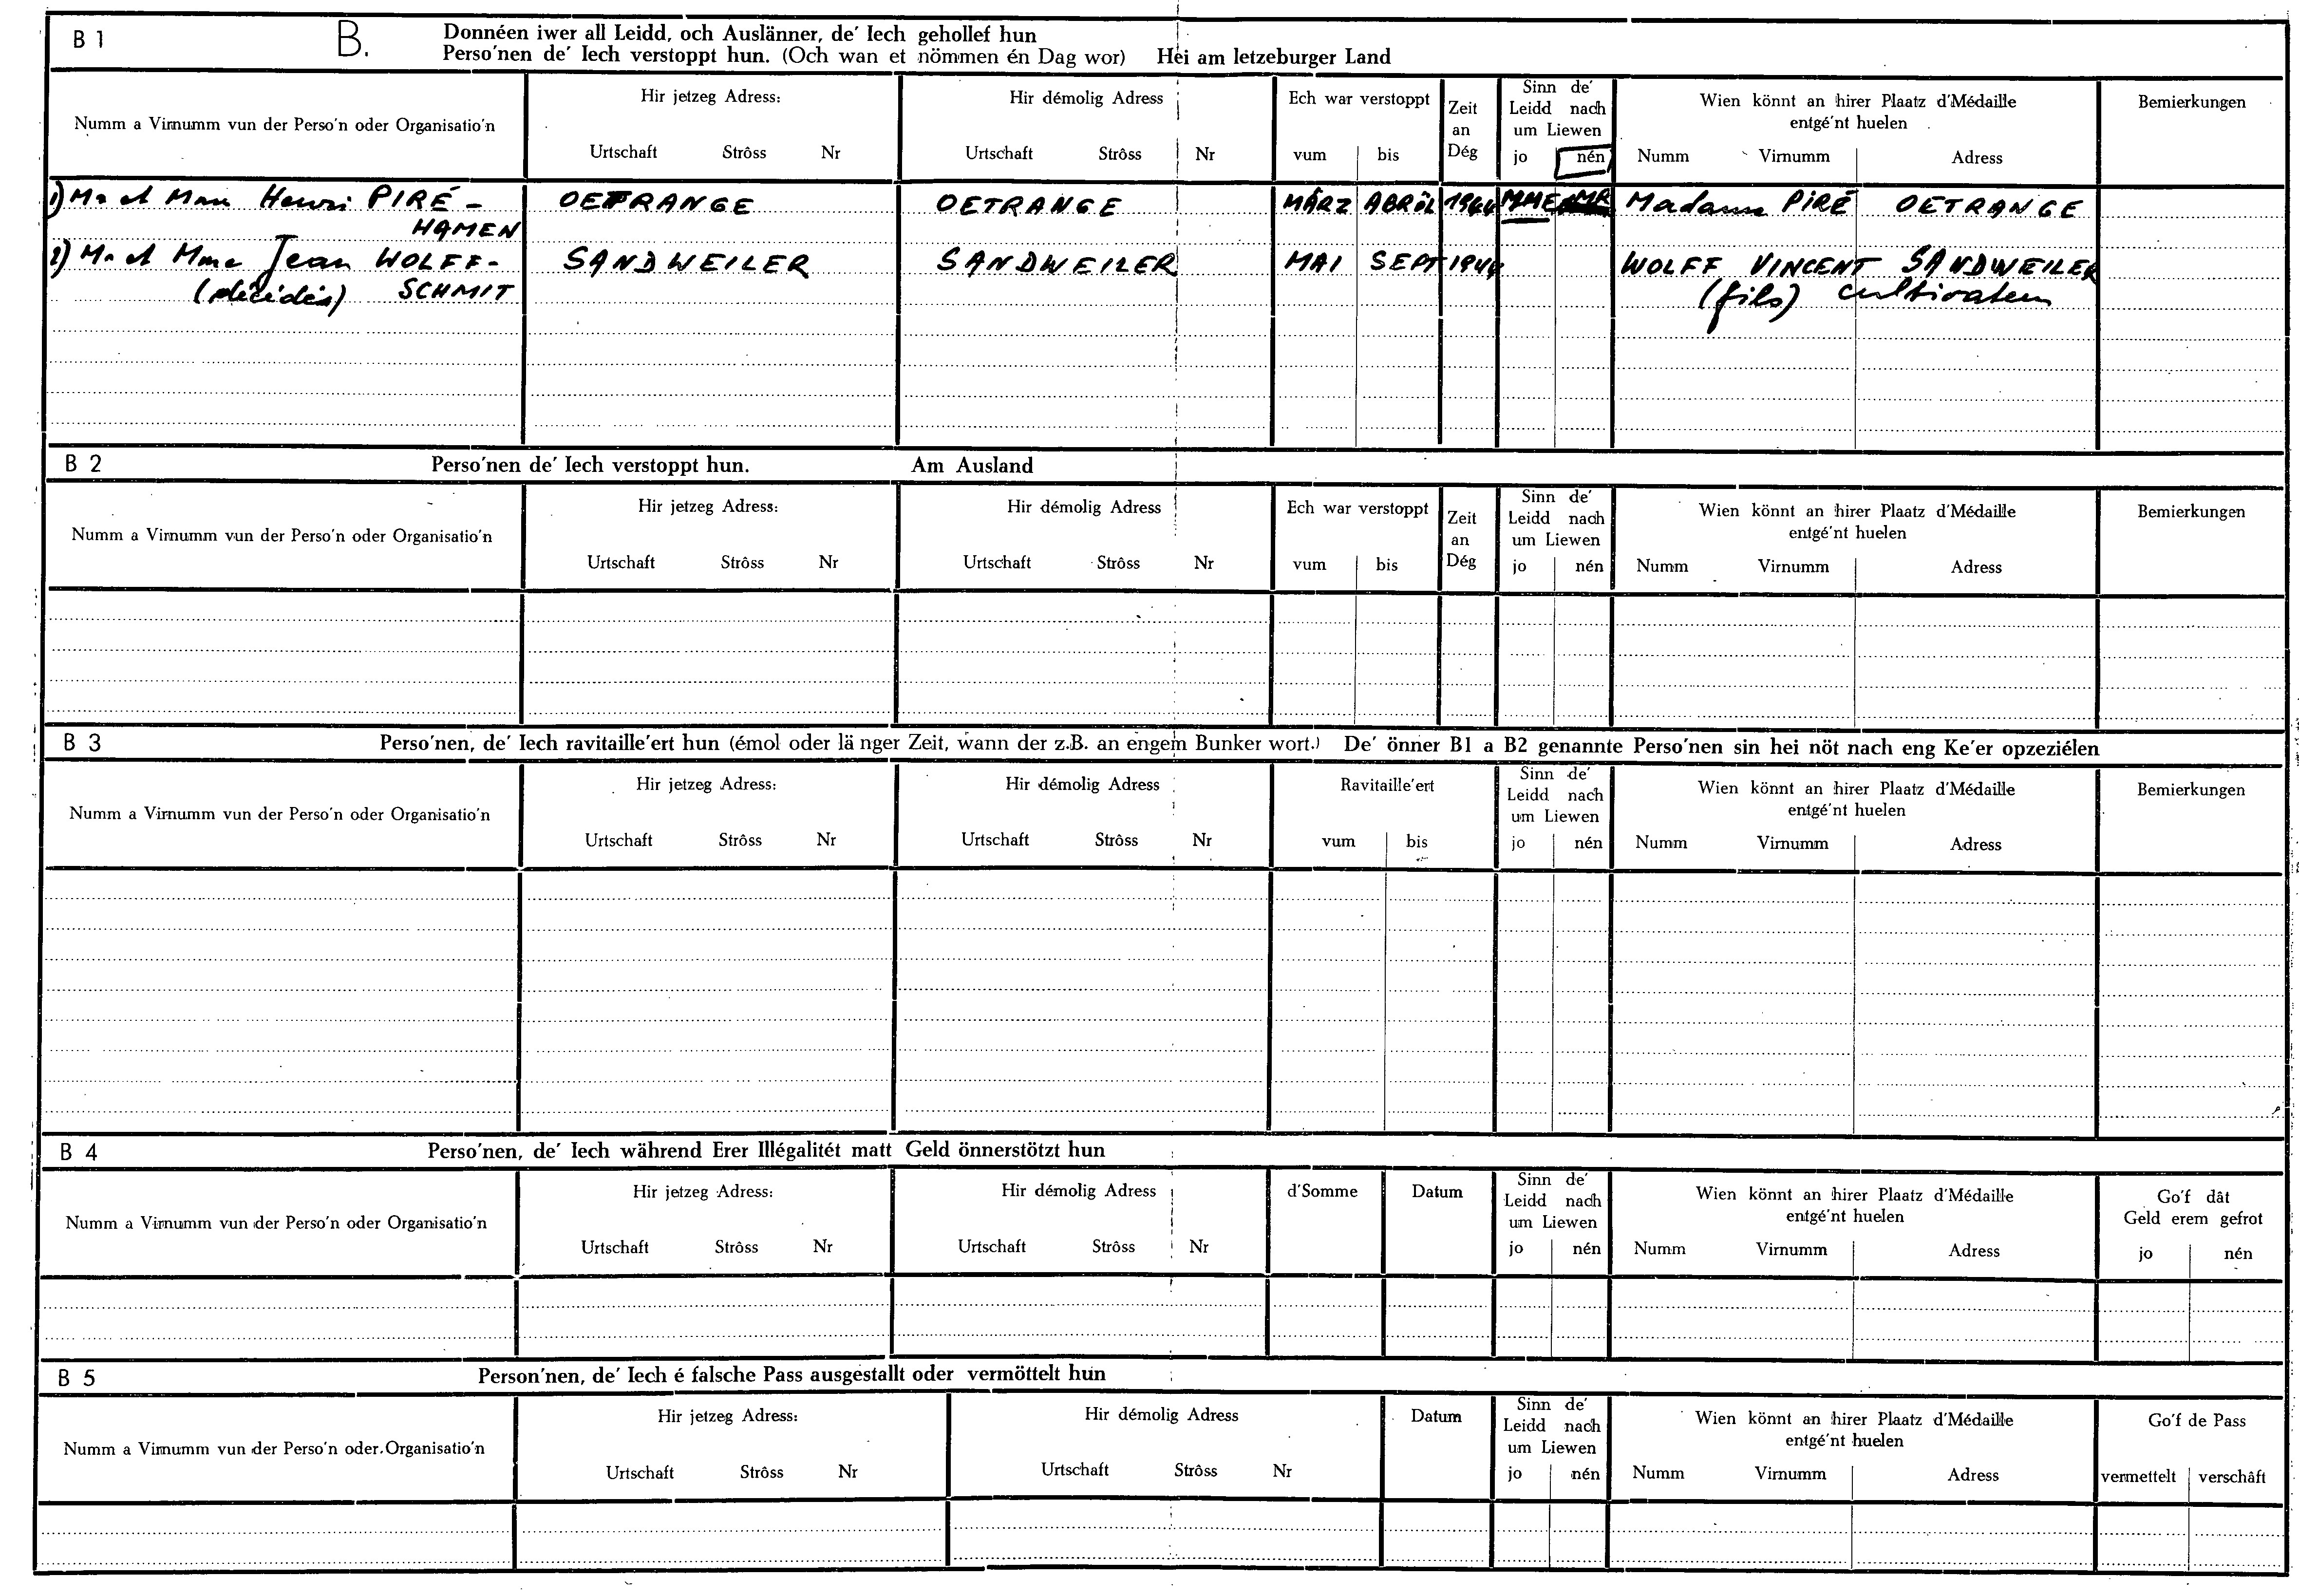 B 1 B. Donnéen iwer all Leidd, och Auslänner, de' Iech gehollef hun
Perso'nen de' Iech verstoppt hun. (Och wan et nömmen én Dag wor) Héi am letzeburger Land
Numm a Virnumm vun der Perso'n oder Organisatio'n
Hir jetzeg Adress:
Urtschaft Strôss Nr
Hir démolig Adress
Urtschaft Strôss Nr
Ech war verstoppt
vum bis
Zeit
an
Dég
Sinn de'
Leidd nach
um Liewen
jo nén
Wien könnt an hirer Plaatz d'Médaille
entgé'nt huelen
Numm Virnumm Adress
Bemierkungen
1) Mr et Mme Henri PIRÉ - OETRANGE OETRANGE MÄRZ ABRIL 1944 MME MR Madame PIRÉ OETRANGE
HAMEN
2) Mr et Mme Jean WOLFF- SANDWEILER SANDWEILER MAI SEPT 1944 WOLFF VINCENT SANDWEILER
(décédés) SCHMIT (fils) cultivateur
B 2 Perso'nen de' Iech verstoppt hun. Am Ausland
Numm a Virnumm vun der Perso'n oder Organisatio'n
Hir jetzeg Adress:
Urtschaft Strôss Nr
Hir démolig Adress
Urtschaft Strôss Nr
Ech war verstoppt
vum bis
Zeit
an
Dég
Sinn de'
Leidd nach
um Liewen
jo nén
Wien könnt an hirer Plaatz d'Médaille
entgé'nt huelen
Numm Virnumm Adress
Bemierkungen
B 3 Perso'nen, de' Iech ravitaille'ert hun (émol oder länger Zeit, wann der z.B. an engem Bunker wort.) De' önner B1 a B2 genannte Perso'nen sin hei nöt nach eng Ke'er opzeziélen
Numm a Virnumm vun der Perso'n oder Organisatio'n
Hir jetzeg Adress:
Urtschaft Strôss Nr
Hir démolig Adress
Urtschaft Strôss Nr
Ravitaille'ert
vum bis
Sinn de'
Leidd nach
um Liewen
jo nén
Wien könnt an hirer Plaatz d'Médaille
entgé'nt huelen
Numm Virnumm Adress
Bemierkungen
B 4 Perso'nen, de' Iech während Erer Illégalitét matt Geld önnerstötzt hun
Numm a Virnumm vun der Perso'n oder Organisatio'n
Hir jetzeg Adress:
Urtschaft Strôss Nr
Hir démolig Adress
Urtschaft Strôss Nr
d'Somme
Datum
Sinn de'
Leidd nach
um Liewen
jo nén
Wien könnt an hirer Plaatz d'Médaille
entgé'nt huelen
Numm Virnumm Adress
Go'f dât
Geld erem gefrot
jo nén
B 5 Person'nen, de' Iech é falsche Pass ausgestallt oder vermöttelt hun
Numm a Virnumm vun der Perso'n oder Organisatio'n
Hir jetzeg Adress:
Urtschaft Strôss Nr
Hir démolig Adress
Urtschaft Strôss Nr
Datum
Sinn de'
Leidd nach
um Liewen
jo nén
Wien könnt an hirer Plaatz d'Médaille
entgé'nt huelen
Numm Virnumm Adress
Go'f de Pass
vermettelt verschâft